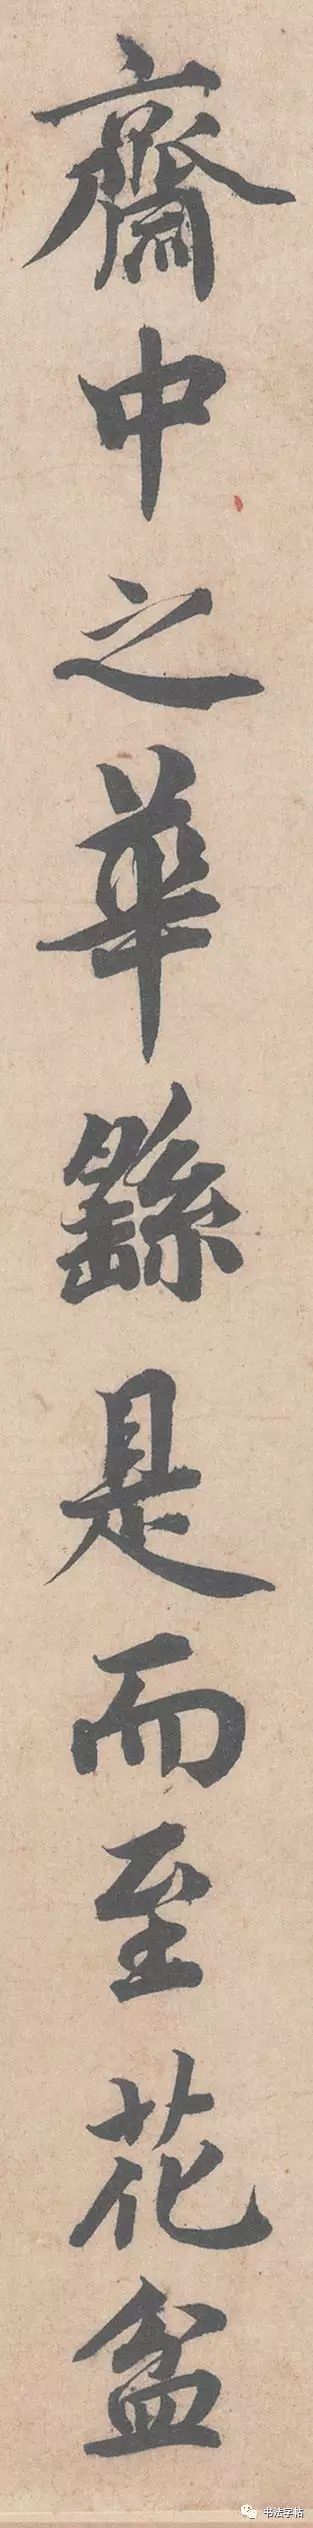 齋中之華繇是而至花盆
书法字帖